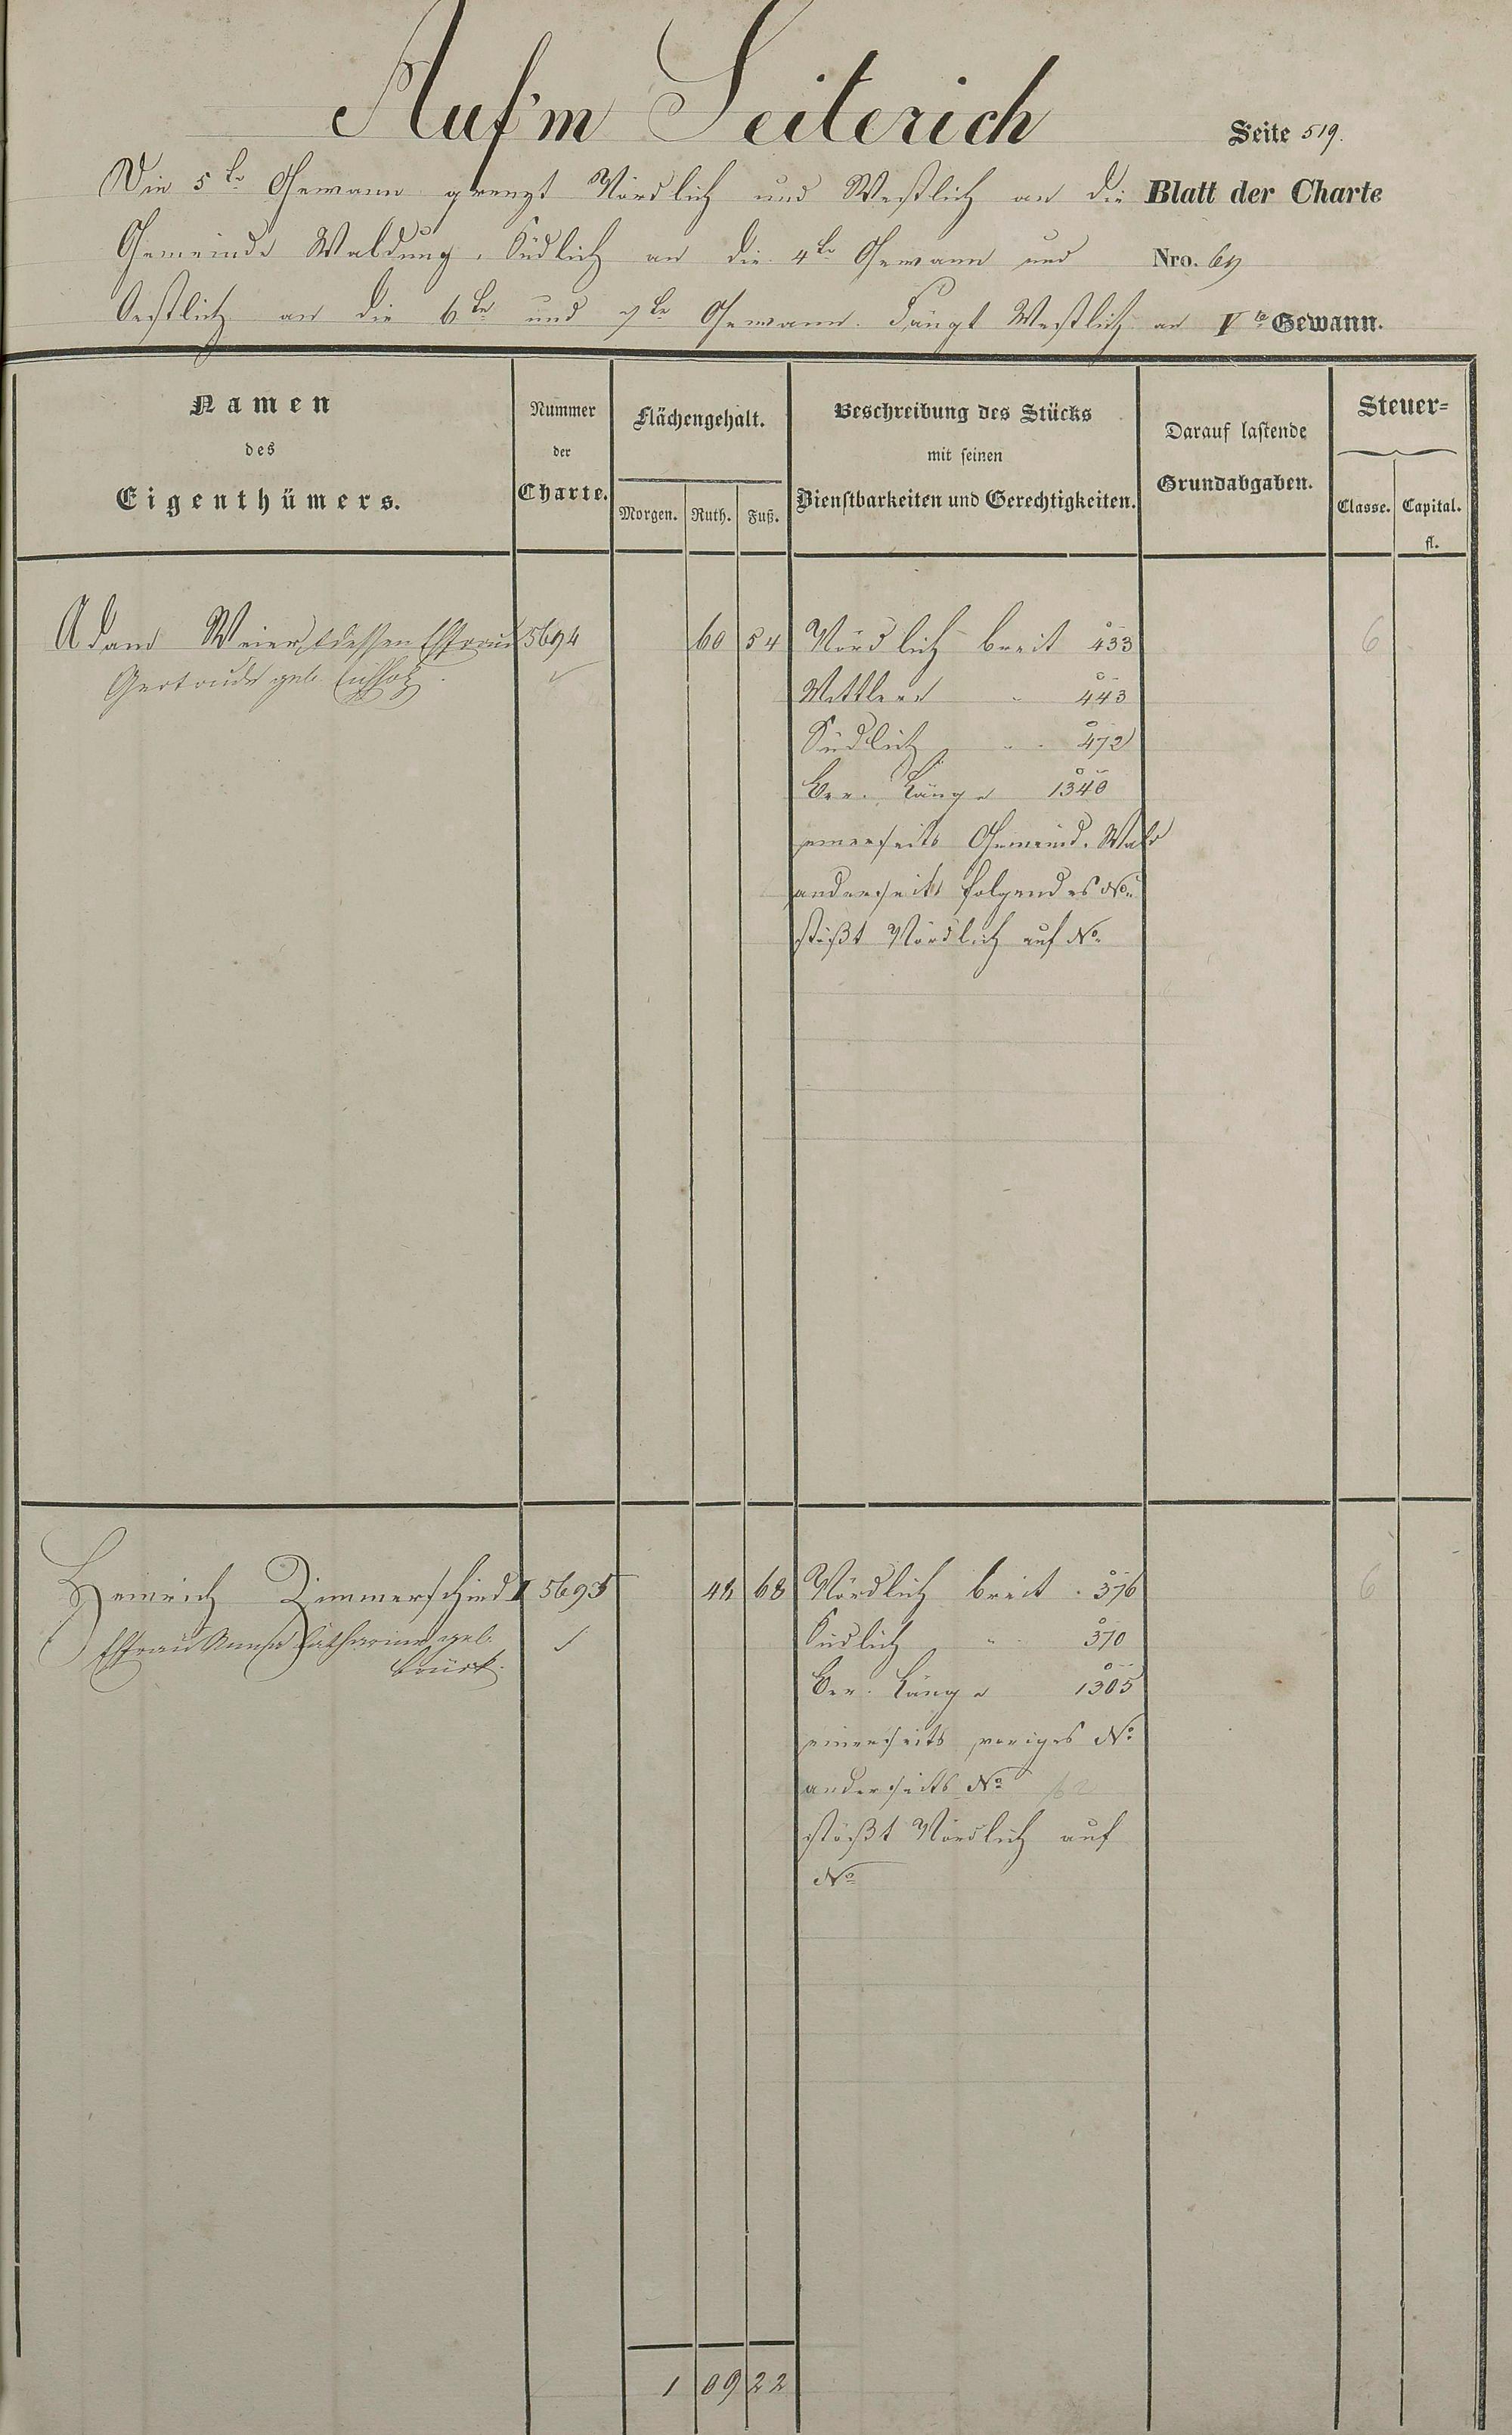 Auf'm Seiterich
Seite 519.
Die 5te Gewann grenzt Nördlich und Westlich an die
Blatt der Charte
Gemeinde Waldung, Südlich an die 4te Gewann und
Nro. 69
Oestlich an die 6te und 7te Gewann. Fängt Westlich an
Vte Gewann.
Namen
des
Eigenthümers.
Nummer
der
Charte.
Flächengehalt.
Morgen. Ruth. Fuß.
Beschreibung des Stücks
mit seinen
Dienstbarkeiten und Gerechtigkeiten.
Darauf lastende
Grundabgaben.
Steuer=
Classe. Capital.
fl.
Adam Weier, dessen Ehefrau 5694 60 54 Nördlich breit 433 6
Gertrude geb.
Mittlere " 443
Südlich " " 472
Ger. Länge 1340
einerseits Gemeind. Wald
anderseits folgendes No.
stößt Nördlich auf No.
Heinrich Zimmerschied II 5695 48 68 Nördlich breit . 376 6
Ehefrau Anna Catharine geb.
Südlich " 370
Ger. Länge 1305
einerseits voriges No
anderseits No
stößt Nördlich auf
No
1 09 22